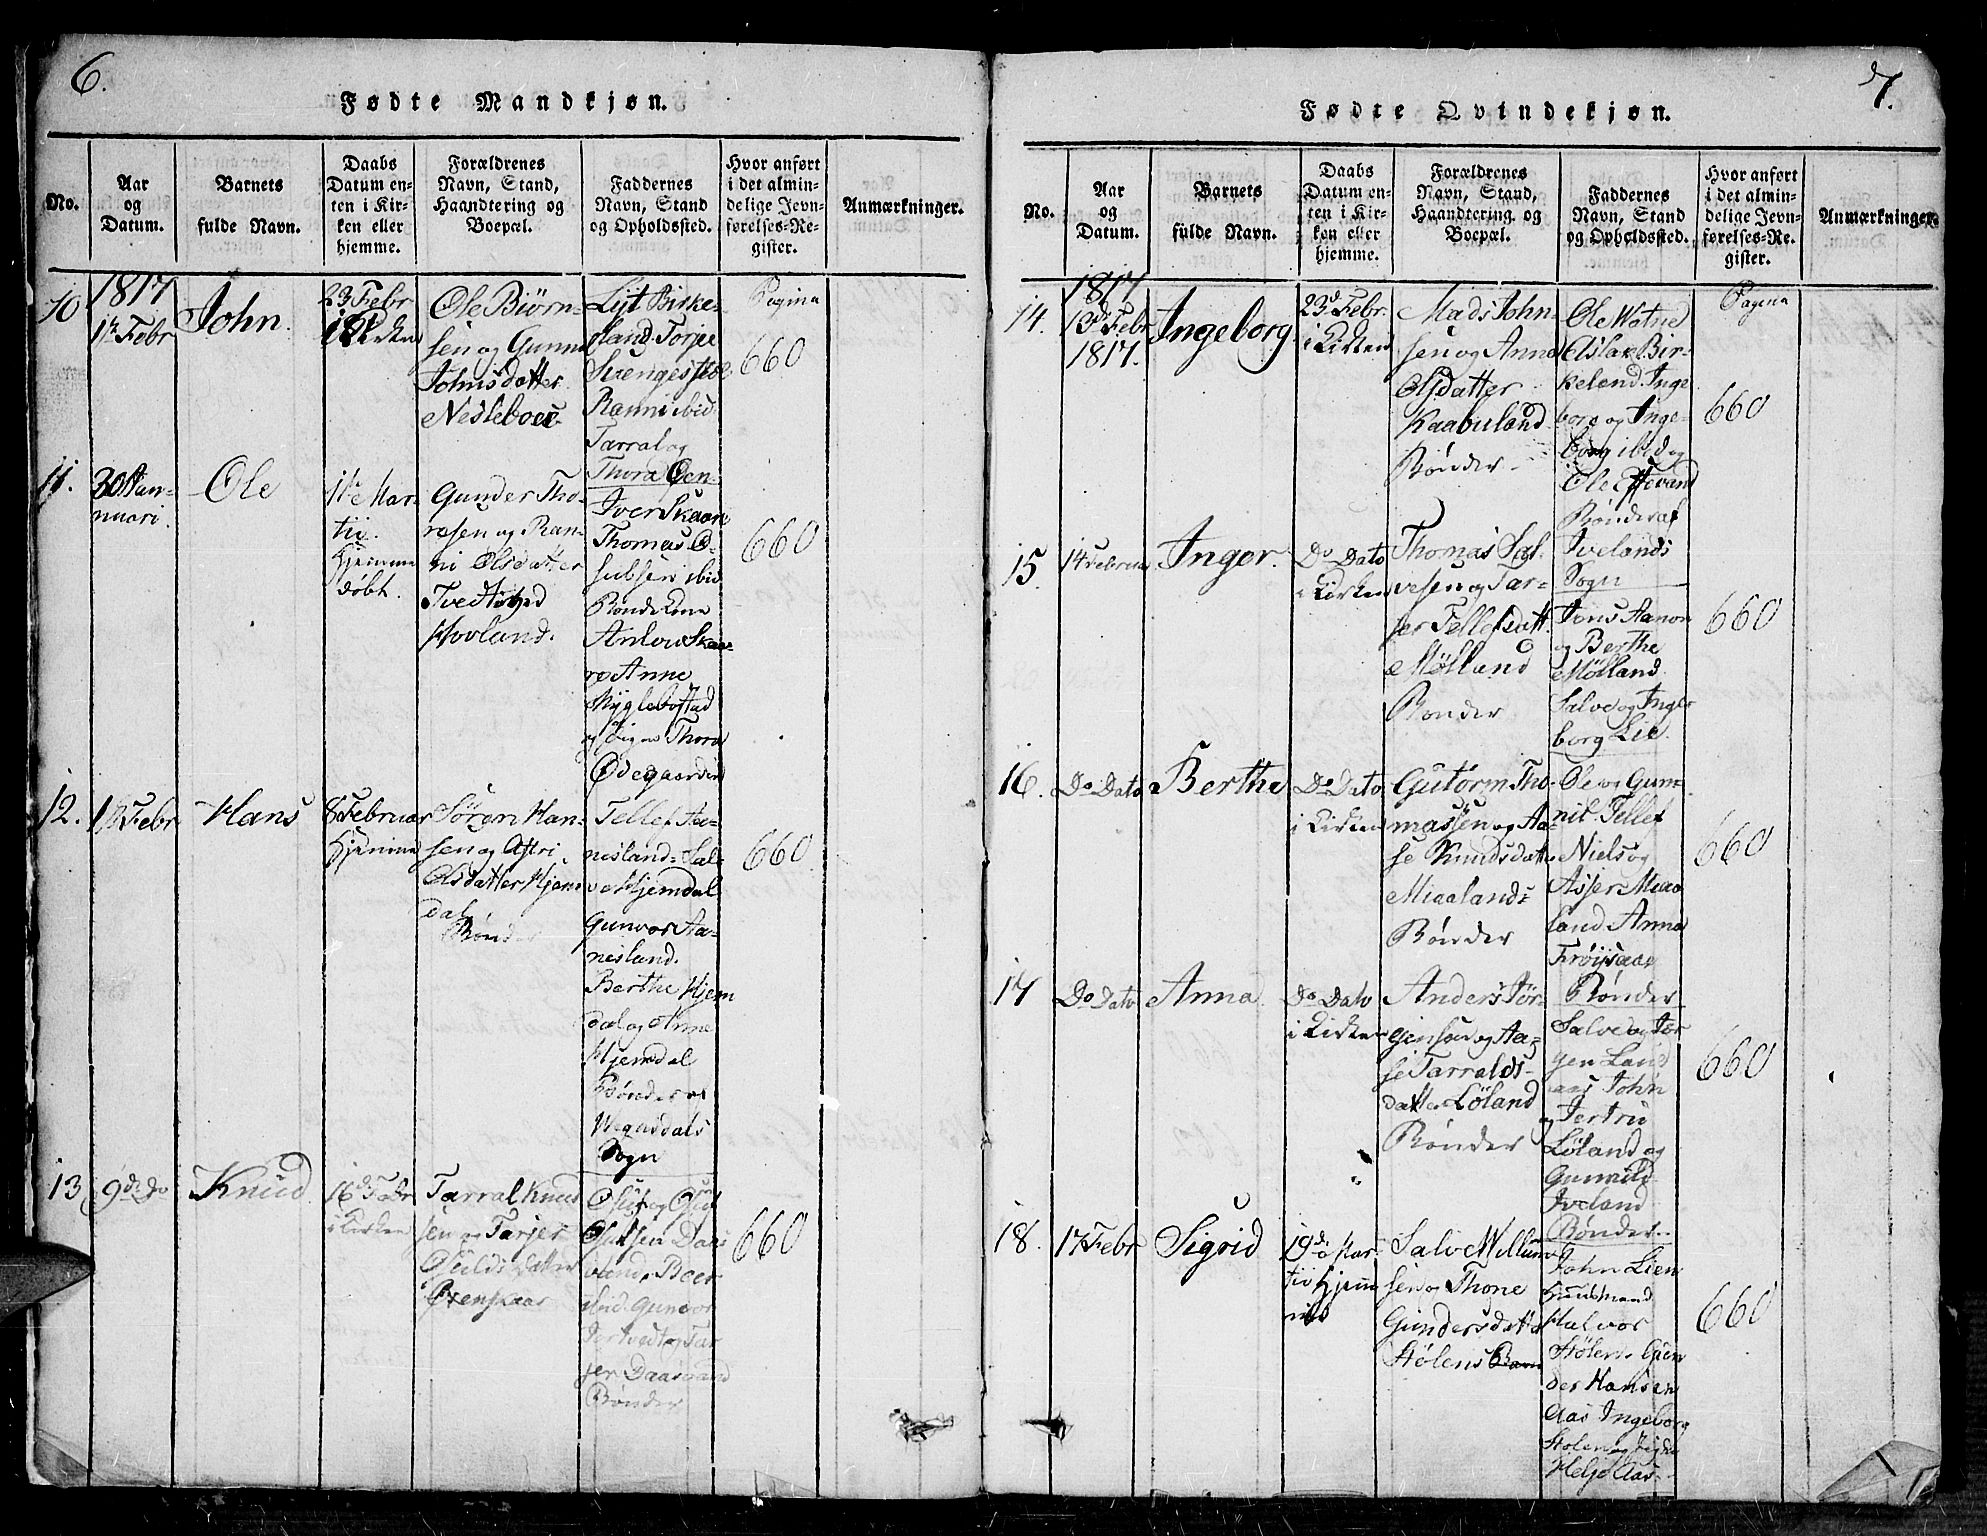 6.
Fødte Mandkjøn.
No.
Aar
og
Datum.
Barnets
fulde Navn.
Daabs
Datum en-
ten i Kir-
ken eller
hjemme.
Forældrenes
Navn, Stand,
Haandtering og
Boepæl.
Faddernes
Navn, Stand
og Opholdssted.
Hvor anført
i det almin-
delige Jevn-
førelses-Re-
gister.
Anmærkninger.
10
1817
Febr
John.
23 Febr
i Kirken
Ole Biørn-
sen og Gunne
Johnsdatter
Nesleboer
Birke-
land Torje
Ranni ibid
Tarral og
Thora
Pagina
660
11.
30 Jan-
nuari.
Ole
Mar-
tii.
Hjemme
døbt.
Gunder Tho-
resen og Ran-
ni Olsdatter
Hovland.
Iver Skaare
Thomas
ibid
Bonde
Skaa-
re Anne
og Thora
Ødegaarden
660
12.
Febr
Hans
8 Februar
Hjemme
Sørgn Han-
sen og Astri
Olsdatter Hjem-
dal
Bønder
Tellef Aa-
nesland Sal-
ve Hjemdal
Gunvor Aa-
nesland.
Berthe Hjem
dal og Anne
Hjemdal
Bønder
Wegusdals
Sogn
660
13
9de do
Knud
16 Febr
i Kirken
Tarral Knud
sen og Tarjer
Osulds datter
Oxenskaar
Osuf og
ibid. Gunvor
Tar
jer Daasvand
Bønder
660
7.
Fødte Qvindekjøn.
No.
Aar
og
Datum.
Barnets
fulde Navn.
Daabs
Datum en-
ten i Kir-
ken eller
hjemme.
Forældrenes
Navn, Stand,
Haandtering og
Boepæl.
Faddernes
Navn, Stand
og Opholdssted.
Hvor anført
i det almin-
delige Jevn-
førelses-Re-
gister.
Anmærkninger.
14.
1817
13d Febr
1817.
Ingeborg
23d Febr.
i Kirken
Mads John-
sen og Anna
Olsdatter
Kaabuland
Bønder
Ole Watne
Aslak Bir-
keland Inge
borg og Inge-
borg ibid og
Ole
Bønder af
Ivelands
Sogn
Pagina
660
15.
14 Februar
Inger.
Do Dato
i Kirken
Thomas Sal-
vesen og Tar-
jer Tellefsdatt.
Mølland
Bønder
Jens Aanon
og Berthe
Mølland
Salve og Inge
borg Lie.
660
16.
Do Dato
Berthe
Do Dato
i Kirken
Gutorm Tho-
massen og Aa-
se Knudsdatter
Miaalands
Bønder
Ole og Gun-
nil Tellef
Niels og
Asjer Miaa
land Anna
Frøysaae
Bønder
660
17
Do Dato
Anna
Do Dato
i Kirken
Anders Jør-
gensen og Aa-
se Tarralds-
datter Løland
Bønder
Salve og Jør
gen Land
aas John
og Jertru
Løland og
Gunnild
Iveland
Bønder
660
18.
17 Febr
Sigrid
19de Mar-
tii Hjem
me
Salve Willum
sen og Thone
Gundersdatter
Stølens Barn
John Lien
Huusmand
Halvor
Stølen Gun
der Hansen
Aas Ingeborg
Stølen og Sigrid
Helje Aas
660